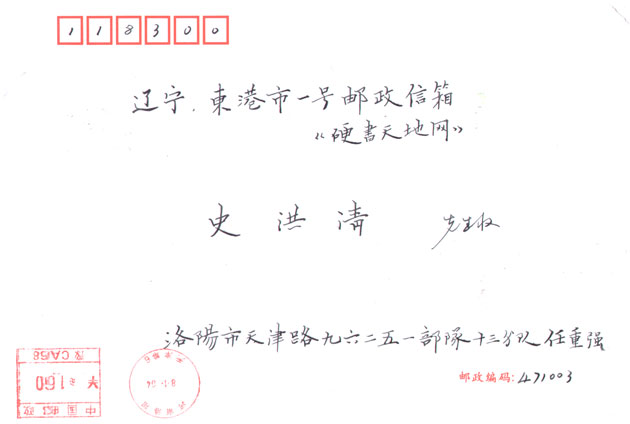 118300
辽宁.東港市一号邮政信箱
《硬書天地网》
史洪清 先生收
洛陽市天津路九六二五一部隊十三分队任重强
邮政编码:471003
豫CA/68
¥ 1.60
中国邮政